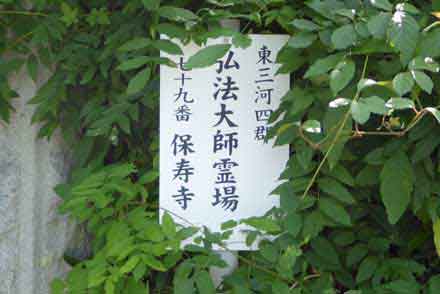 東三河四郡
弘法大師霊場
七十九番 保寿寺